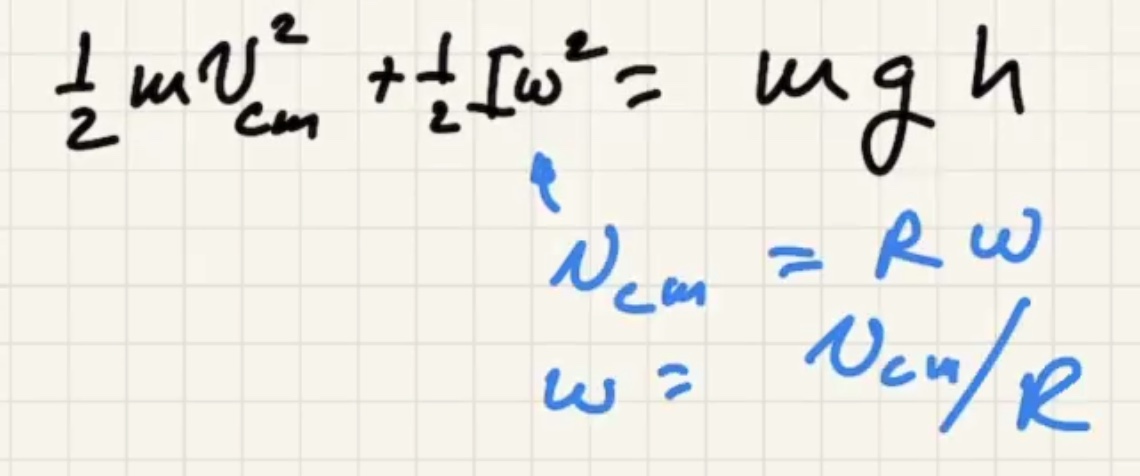 ½ m v²_cm + ½ I ω² = m g h
v_cm = R ω
ω = v_cm / R